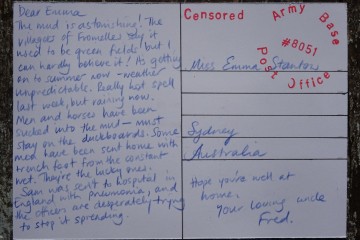 Dear Emma
The mud is astonishing! The
villagers of Fromelles say it
used to be green fields but I
can hardly believe it! Its getting
on to summer now - weather
unpredictable. Really hot spell
last week, but raining now.
Men and horses have been
sucked into the mud - must
stay on the duckboards. Some
men have been sent home with
trench foot from the constant
wet. They're the lucky ones.
Sam was sent to hospital in
England with pneumonia, and
the officers are desperately trying
to stop it spreading.
Censored
Army Base
#8051
Post Office
Miss Emma Stanton
Sydney
Australia
Hope you're well at
home.
Your loving uncle
Fred.